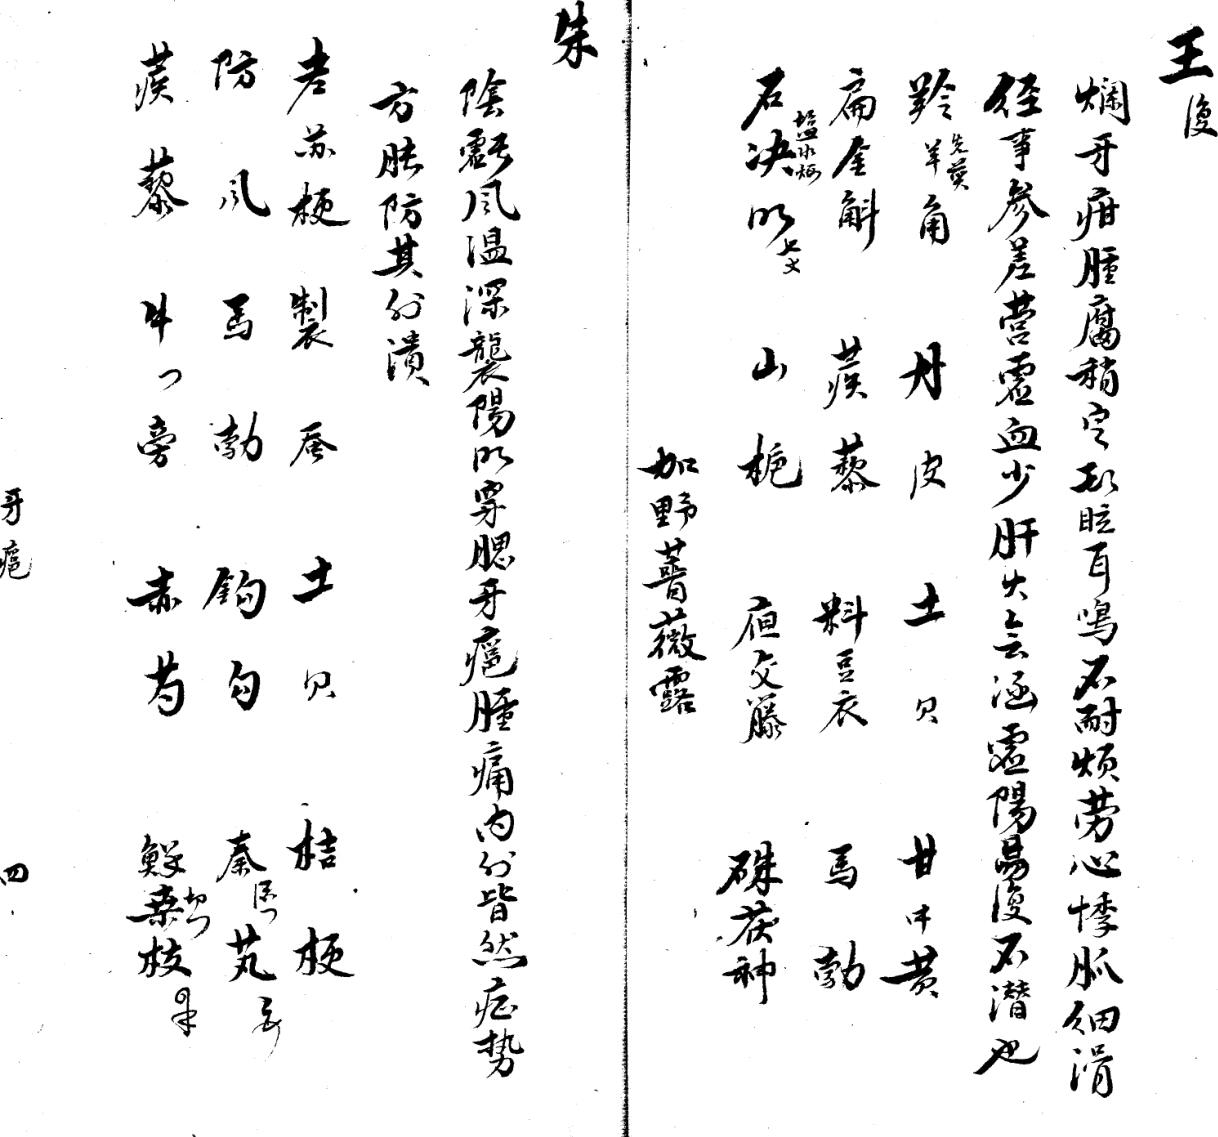 王 復
爛牙疳腫腐稍定頭眩耳鳴不耐煩勞心悸脈細涓
經事參差營虛血少肝失云涵虛陽易復不潛也
羚羊角 先煎 丹皮 土貝 甘中黃
扁金斛 蒺藜 料豆衣 馬勃
石決明 鹽水煅 七文 山梔 夜交藤 硃茯神
加野薔薇露
朱
陰虧風溫深襲陽明穿腮牙瘧腫痛內外皆然症勢
方張防其外潰
老蘇梗 製蚕 土貝 桔梗
防風 馬勃 鈎勾 秦艽
蒺藜 牛旁 赤芍 鮮桑枝
牙瘧
四